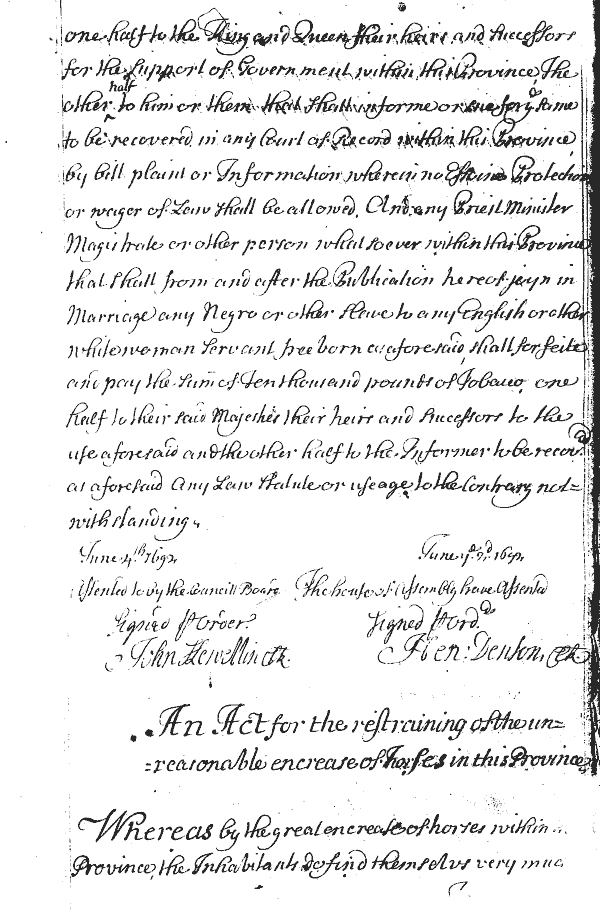 one half to the King and Queen their heirs and Successors
for the support of Government within this Province, The
half
other to him or them that shall informe or sue for yᵉ same
to be recovered in any Court of Record within this Province
by bill plaint or Information wherein no Essoine Protection
or wager of Law shall be allowed, And any Priest Minister
Magistrate or other person whatsoever within this Province
that shall from and after the Publication hereof joyn in
Marriage any Negro or other slave to any English or other
white woman Servant free born as aforesaid, shall forfeite
and pay the sum of Ten thousand pounds of Tobacco, one
half to their said Majesties their heirs and Successors to the
use aforesaid and the other half to the Informer to be recovᵈ
as aforesaid Any Law Statute or useage to the Contrary not=
withstanding.
June 4ᵗʰ 1692 June yᵉ 2ᵈ 1692
Assented to by the Councill Board The house of Assembly have Assented
Signed ꝑ Order Signed ꝑ Ordʳ
John Llewellin Clk. Hen: Denton, Clk
An Act for the restraining of the un=
=reasonable encrease of horses in this Province
Whereas by the great encrease of horses within
Province, the Inhabitants do find themselvs very muc